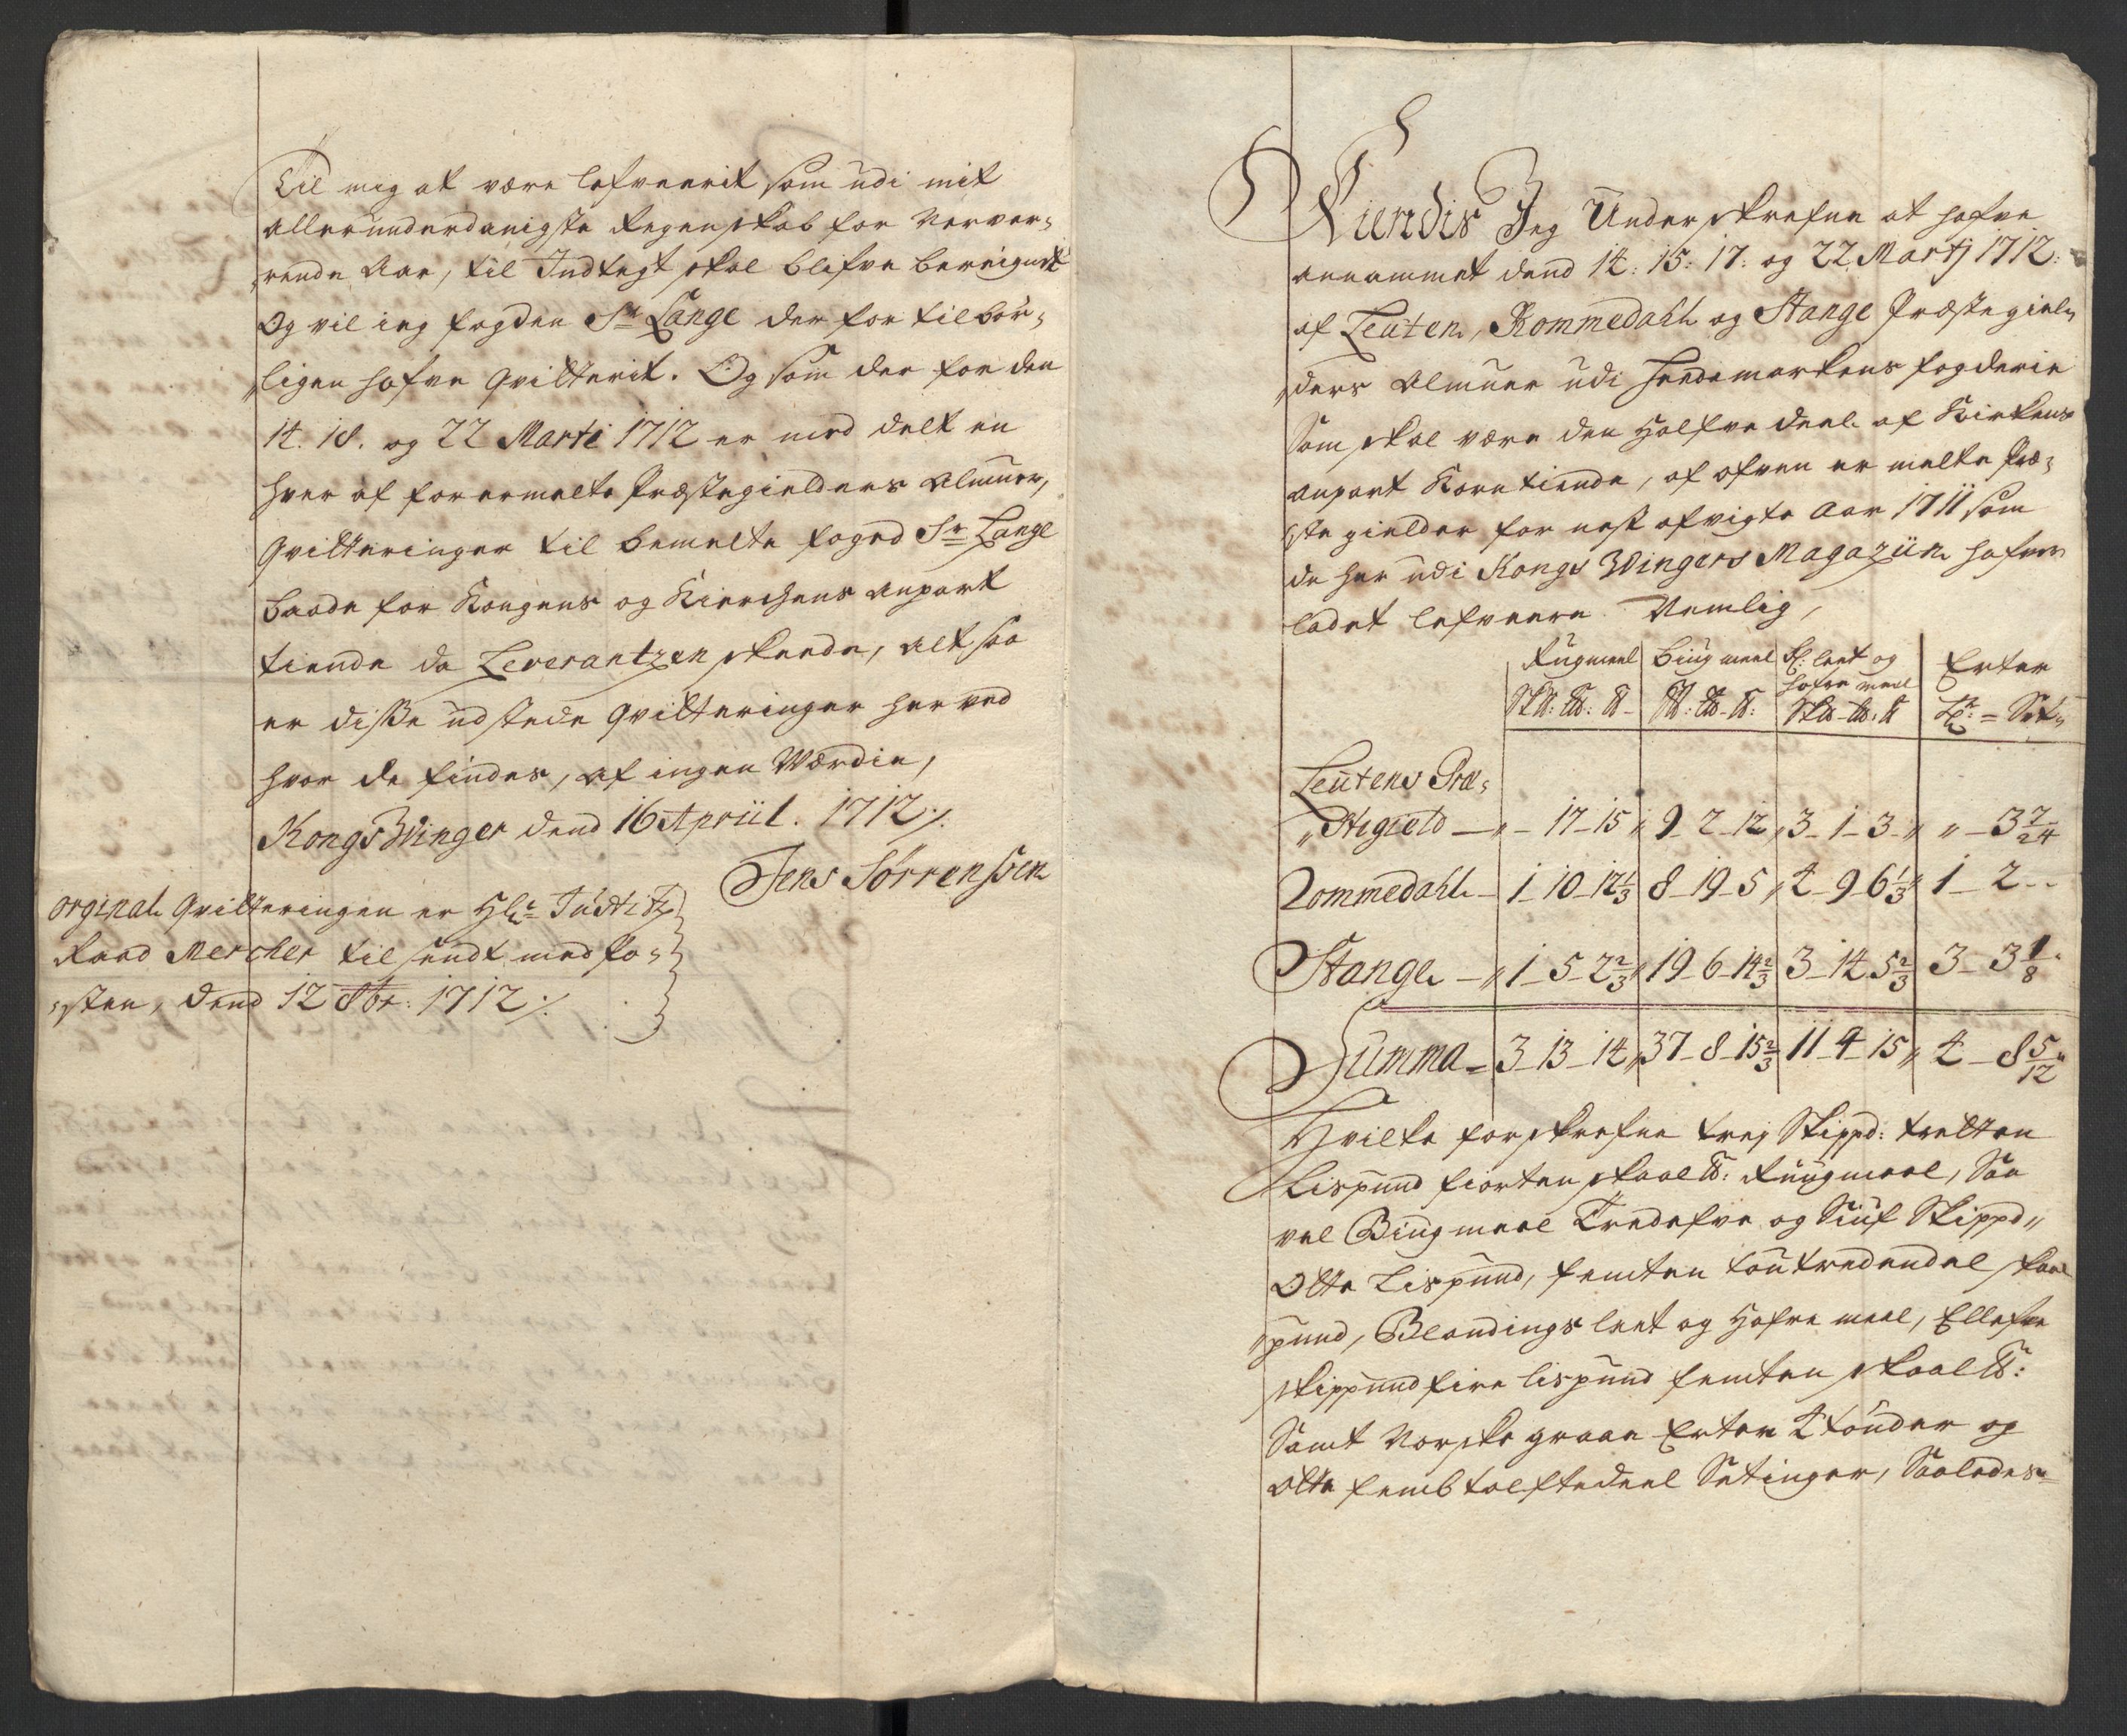 Til mig at være lefverit som udi mit
allerunderdanigste Regenskab for Nerver-
rende Aar, til Indtegt skal blifve bereignet
Og vil ieg fogden Sr Lange der for tilbör-
ligen hafve qvitterit. Og som der for den
14. 18. og 22 Marti 1712 er med delt en
hver af forermelte Præstegielders Almuer,
qvitteringer til bemelte foged Sr Lange
baade for Kongens og Kierchens anpart
tiende da Leverantzen skeede, alt saa
er disse udstede qvitteringer her ved
hvor de findes, af ingen Værdie,
KongsWinger dend 16 Apriil. 1712 ⁒
Jens Sörrenssen
orginal qvitteringen er Hr Justitz
Raad Mercher til sendt med Po-
sten, dend 12 8br: 1712 ⁒
Kiendis Jeg Underskrefne at hafve
annammet dend 14: 15: 17: og 22 Martj 1712:
af Leuten, Rommedahl og Stange Præstegiel-
ders Almuer udi Heedemarkens fogderie
Som skal være den Halfve deel af Kirkens
anpart Korntiende, af ofven er melte Præ-
ste gielder for nest afvigte Aar 1711 som
de her udi Kongs Wingers Magaziin hafver
ladet lefveere Nemlig,
Rugmeel | Biug meel | Bl: leet og hafre meel | Erter
Sk℔: L℔: ℔ | S℔: L℔: ℔: | Sk℔ L℔: ℔ | Tr: = Set
Leutens Præ-
stegield — " _ 17 _ 15 " | 9 _ 2 _ 12 " | 3 _ 1 _ 3 _ " | " _ 3 7/24
Rommedahl — 1 _ 10 _ 12 1/3 | 8 _ 19 _ 5 " | 4 _ 9 _ 6 1/3 | 1 _ 2 --
Stange — " 1 _ 5 _ 2 2/3 " | 19 _ 6 _ 14 2/3 | 3 _ 14 5 2/3 | 3 _ 3 1/8
Summa = 3 _ 13 _ 14 " | 37 _ 8 _ 15 2/3 | 11 _ 4 _ 15 " | 4 _ 8 5/12 "
Hvilke forskrefne trej Skippd: tretten
Lispund fiorten skaal℔: Ruugmeel, Saa
vel Biugmeel Tredefve og Siuf Skippd
Otte Lispund, femten toutredendeel skaal
pund, Blandings leet og Hafre meel, Ellefve
skippund fire lispund femten skaal℔:
Samt Norske graae Erter 4 tönder og
otte femb tolftedeel Setinger, Saaledes